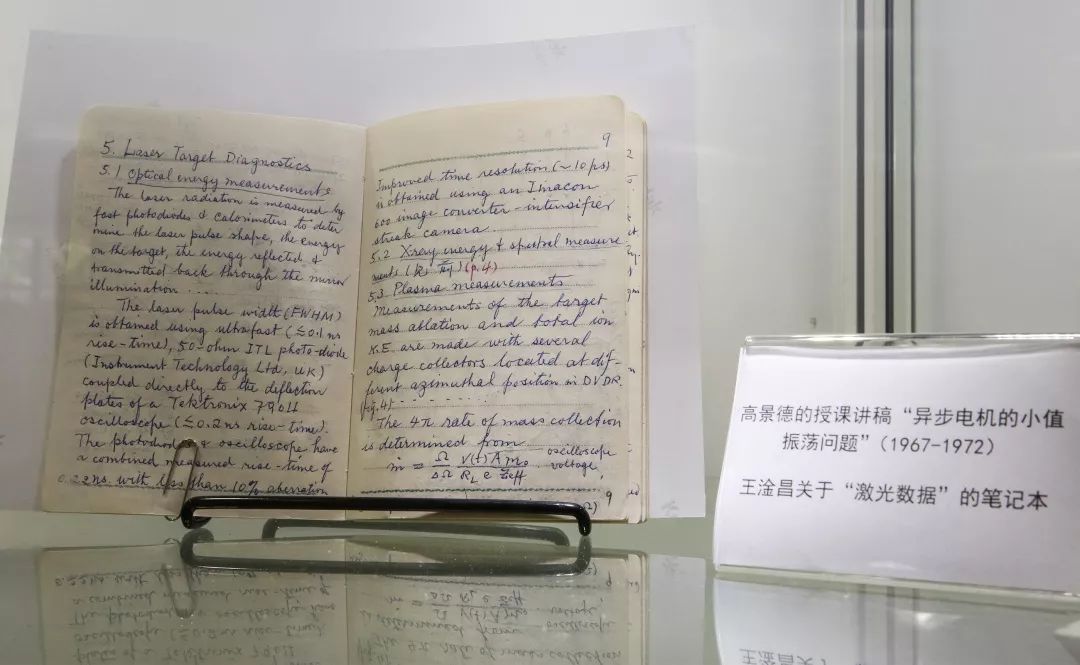 5. Laser Target Diagnostics
5.1 Optical energy measurements
The laser radiation is measured by
fast photodiodes & calorimeters to deter
mine the laser pulse shape, the energy
on the target, the energy reflected &
transmitted back through the mirror
illumination .....
The laser pulse width (FWHM)
is obtained using ultrafast (≦0.1 ns
rise-time), 50-ohm ITL photo-diode
(Instrument Technology Ltd, UK)
coupled directly to the deflection
plates of a Tektronix 7904
oscilloscope (≦0.2 ns rise-time).
The photodiode & oscilloscope have
a combined measured rise-time of
0.22ns with less than 10% aberration
9
Improved time resolution (~10 ps)
is obtained using an Imacon
600 image converter-intensifier
streak camera.
5.2 Xray energy & spectral measure
ments (p.4)
5.3 Plasma measurements
Measurements of the target
mass ablation and total ion
K.E. are made with several
charge collectors located at dif-
ferent azimuthal position in DVDR.
fig.4)
The 4π rate of mass collection
is determined from
oscilloscope
ṁ = Ω/ΔΩ V(t)/R_L A m₀/e Z_eff voltage
9
高景德的授课讲稿“异步电机的小值
振荡问题”(1967-1972)
王淦昌关于“激光数据”的笔记本